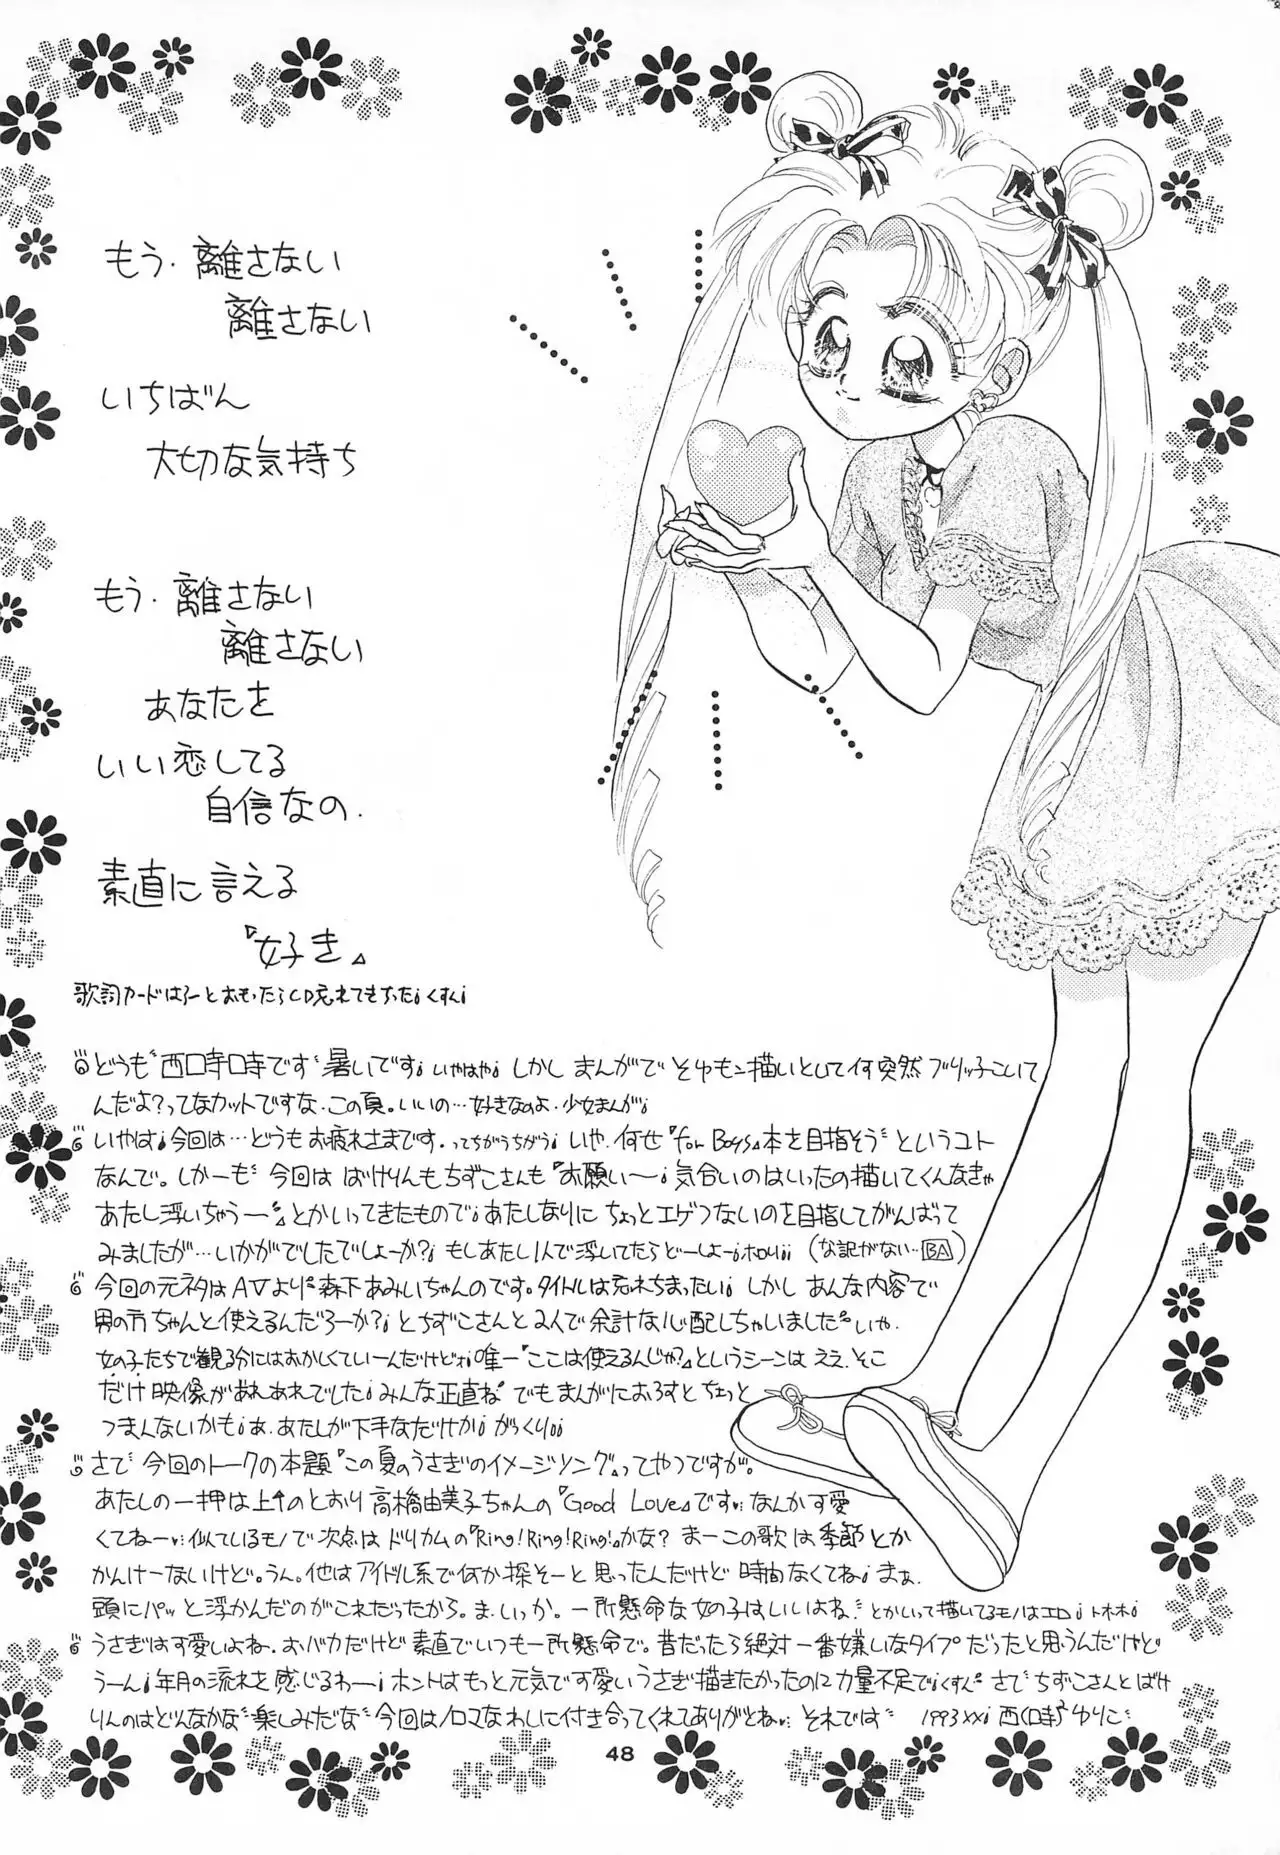 もう.離さない
離さない
いちばん
大切な気持ち
もう.離さない
離さない
あなたを
いい恋してる
自信なの.
素直に言える
『好き』
歌詞カードはろーとおもったらCD忘れてきちった¡くすん¡
どうも〝西口寺口寺です〟暑いです¡いやはや¡しかしまんがでそゆもン描いといて何突然ブリッ子こいて
んだよ?ってなカットですな.この頁。いいの…好きなのよ.少女まんが¡
いやは¡今回は…どうもお疲れさまです.ってちがうちがう¡いや.何せ『for Boys』本を目指そう〟というコト
なんで。しかーも〝今回はばけりんもちずこさんも『お願い〜¡気合いのはいったの描いてくんなきゃ
あたし浮いちゃうー〟』とかいってきたもので¡あたしなりにちょっとエゲツないのを目指してがんばって
みましたが…いかがでしたでしょーか?¡もしあたし1人で浮いてたらどーしよー¡ホロリ¡¡(な訳がない…BA)
今回の元ネタはAVより〝森下あみいちゃんのです。タイトルは忘れちまったい¡しかしあんな内容で
男の方ちゃんと使えるんだろーか?¡とちずこさんと2人で余計な心配しちゃいました〟いや.
女の子たちで観る分にはおかしくていーんだけどォ¡唯一『ここは使えるんじゃ?』というシーンはええ.そこ
だけ映像があれあれでした¡みんな正直ね〟でもまんがにおろすとちょっと
つまんないかも¡ぁ.あたしが下手なだけか¡がっくり¡¡
さて〝今回のトークの本題『この夏のうさぎのイメージソング』ってやつですが。
あたしの一押は上↑のとおり高橋由美子ちゃんの『Good Love』です♥なんか可愛
くてねー♥似ているモノで次点はドリカムの『Ring!Ring!Ring!』かな?まーこの歌は季節とか
かんけーないけど。うん。他はアイドル系で何か探そーと思ったんだけど時間なくてね¡まぁ.
頭にパッと浮かんだのがこれだったから。ま.いっか。一所懸命な女の子はいいよね〟とかいって描いてるモノはエロ¡トホホ¡
うさぎは可愛いよね.おバカだけど素直でいつも一所懸命で。昔だったら絶対一番嫌いなタイプだったと思うんだけど
うーん¡年月の流れを感じるわー¡ホントはもっと元気で可愛いうさぎ描きたかったのに力量不足で¡くすん〟さて〝ちずこさんとばけ
りんのはどんなかな〝楽しみだな〟今回はノロマなわしに付き合ってくれてありがとね♥それでは〟 1993××¡ 西口寺ゆりこ
48